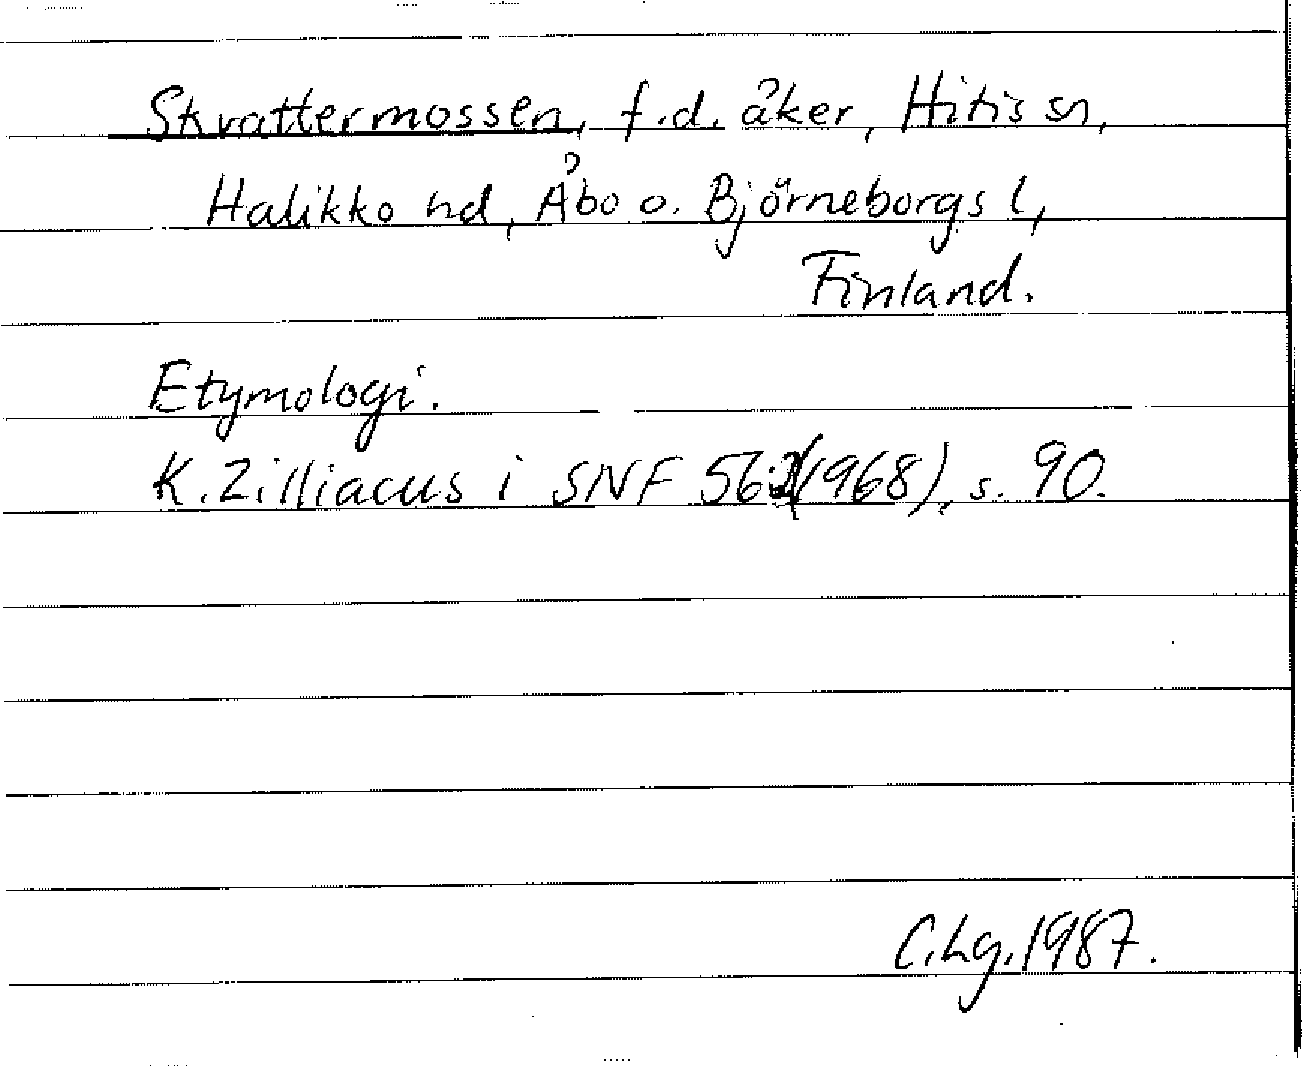 Skrattermossen, f.d. åker, Hitis sn,
Halikko hd, Åbo o. Björneborgs l,
Finland.
Etymologi.
K. Zilliacus i SNF 56:2(1968), s. 90.
C.Lg.1987.